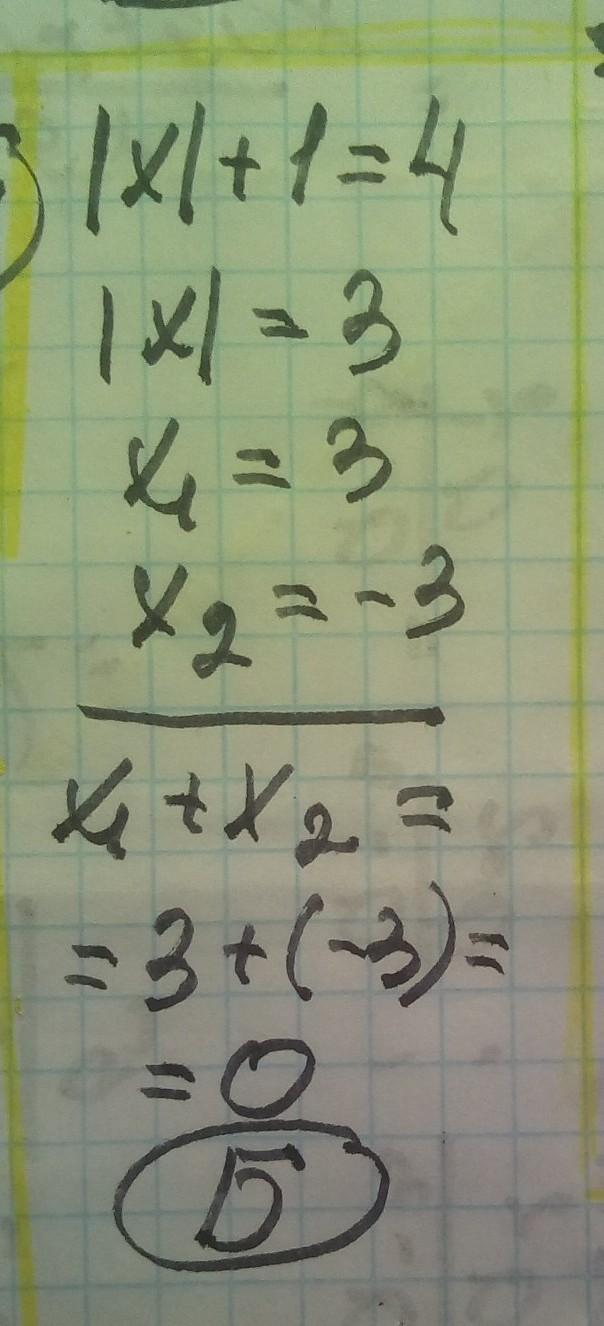 |x|+1=4
|x|=3
x₁=3
x₂=-3
x₁+x₂=
=3+(-3)=
=0
Б